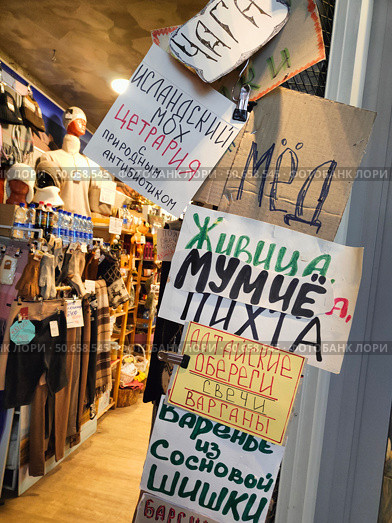 ИСЛАНДСКИЙ
МОХ
ЦЕТРАРИЯ
С
ПРИРОДНЫМ
АНТИБИОТИКОМ
МЁД
ЖИВИЦА,
МУМИЁ
ПИХТА
АЛТАЙСКИЕ
ОБЕРЕГИ
СВЕЧИ
ВАРГАНЫ
ВАРЕНЬЕ
ИЗ
СОСНОВОЙ
ШИШКИ
ФОТОБАНК ЛОРИ - 50.658.545 - ФОТОБАНК ЛОРИ